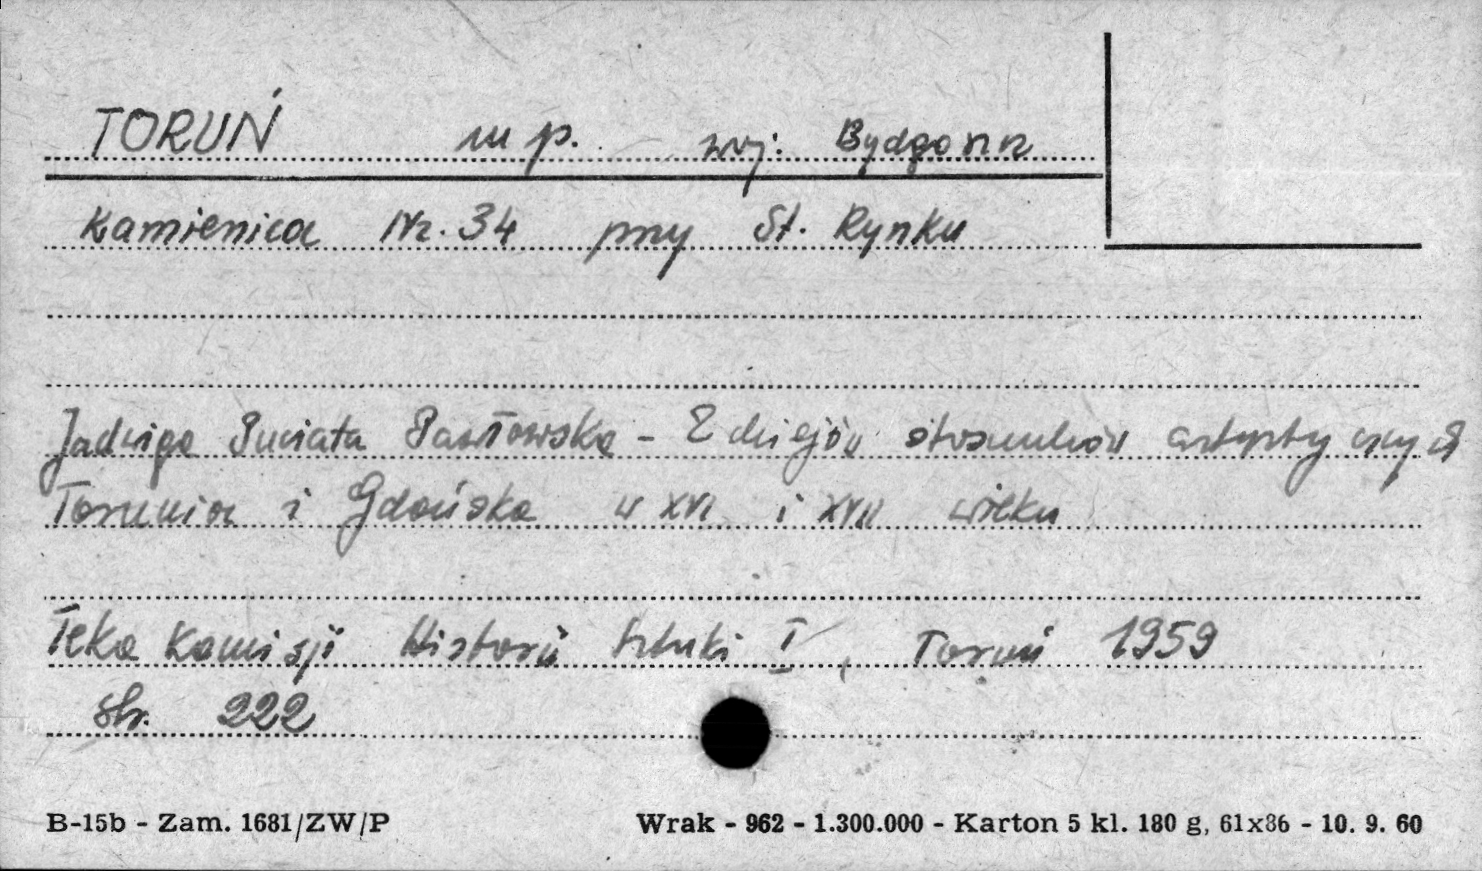 TORUŃ m p. woj: Bydgoszcz
Kamienica Nr. 34 przy St. Rynku
Jadwiga Puciata Pawłowska - Z dziejów stosunków artystycznych
Torunia i Gdańska w XVI i XVII wieku
Teka Komisji Historii Sztuki I, Toruń 1959
str. 222
B-15b - Zam. 1681/ZW/P Wrak - 962 - 1.300.000 - Karton 5 kl. 180 g, 61x86 - 10. 9. 60